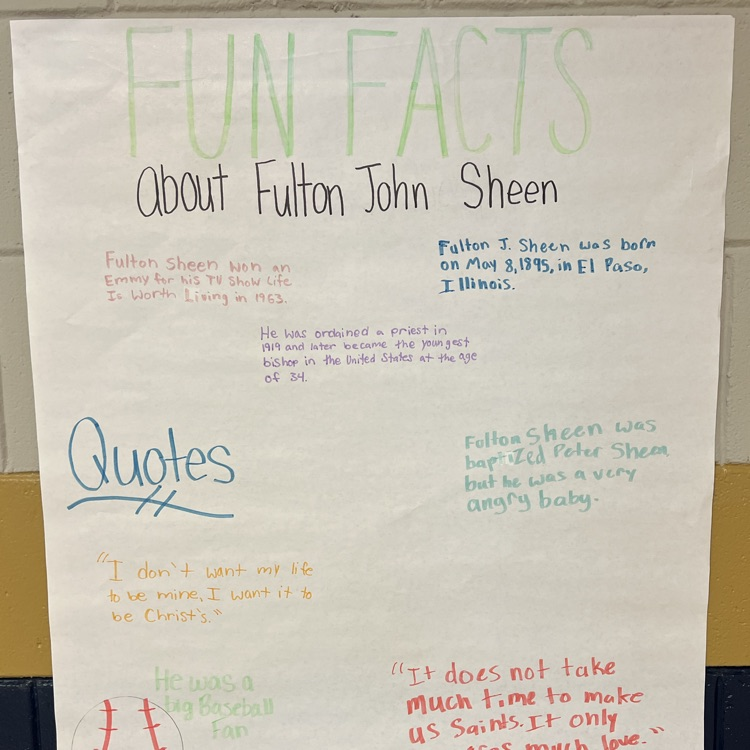 FUN FACTS
About Fulton John Sheen
Fulton Sheen won an
Emmy for his TV Show Life
Is Worth Living in 1963.
Fulton J. Sheen was born
on May 8, 1895, in El Paso,
Illinois.
He was ordained a priest in
1919 and later became the youngest
bishop in the United States at the age
of 34.
Quotes
Fulton Sheen was
baptized Peter Sheen
but he was a very
angry baby.
"I don't want my life
to be mine, I want it to
be Christ's."
He was a
big Baseball
Fan
"It does not take
much time to make
us Saints. It only
much love."